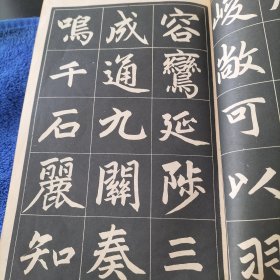 峻敞可以羽
容鸞延陟三
成通九關奏
鳴千石麗知